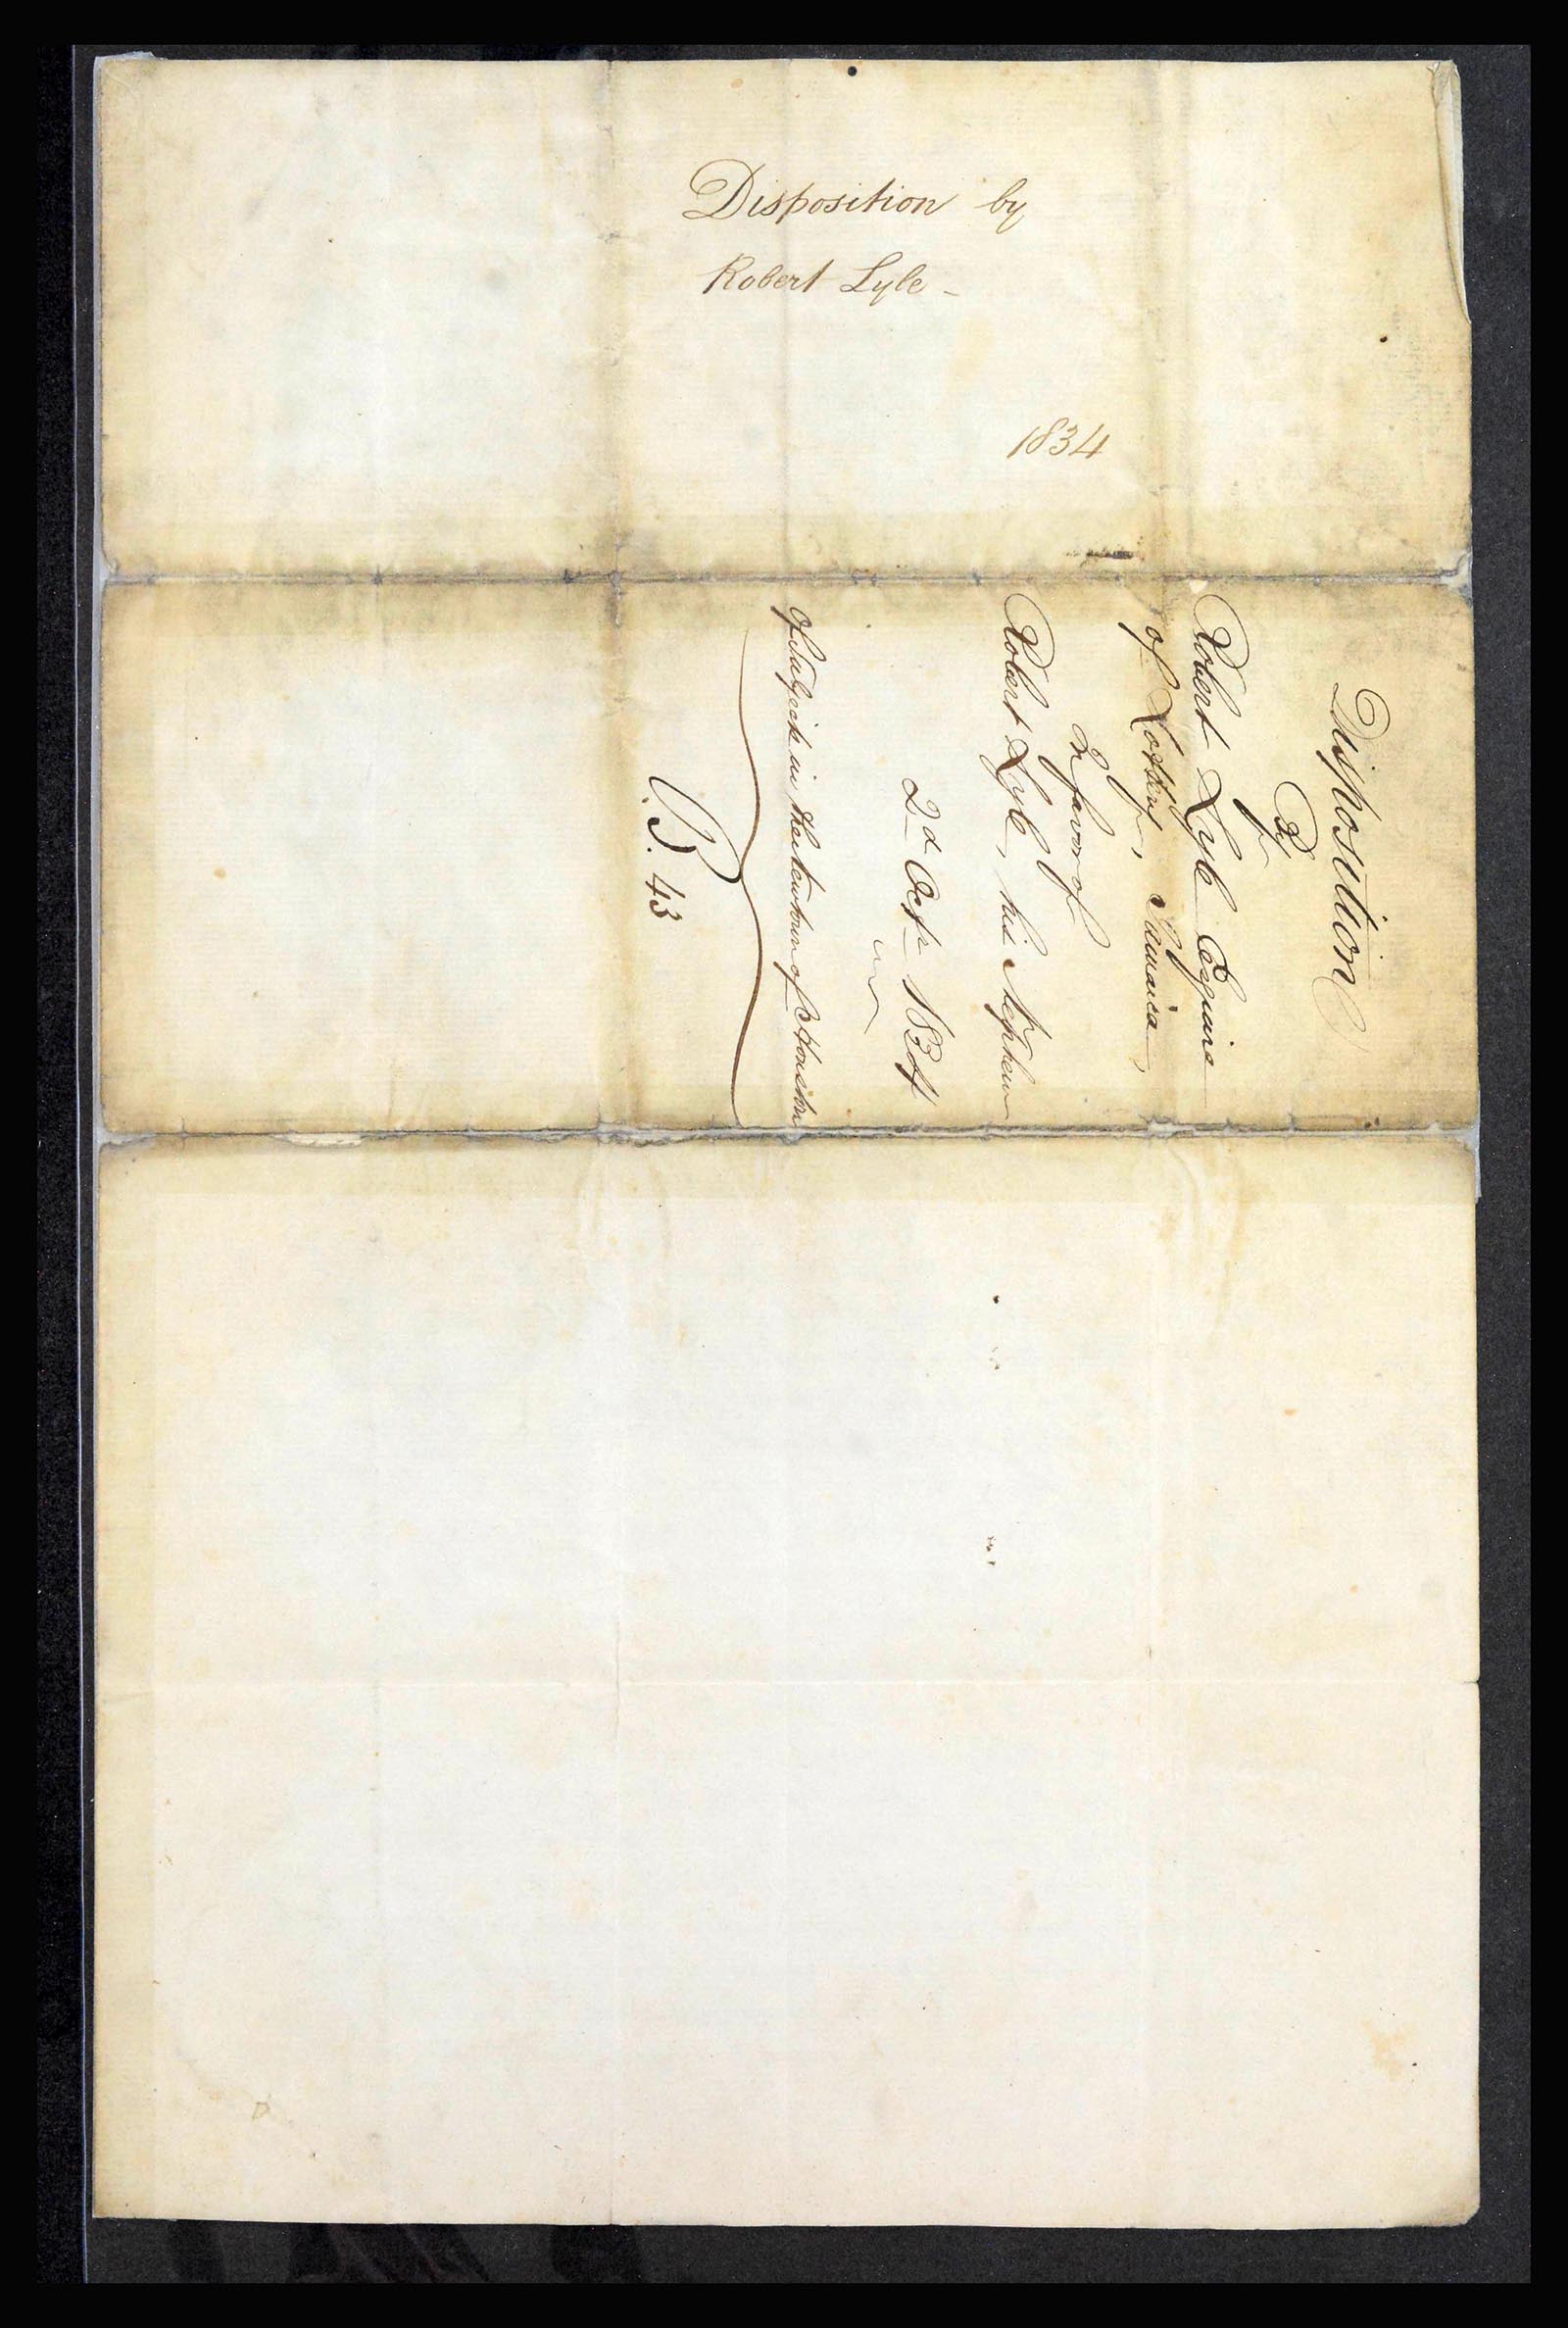 Disposition by
Robert Lyle -
1834
Disposition
By
Robert Lyle Esquire
of Jamaica,
In favor of
Robert Lyle, his Nephew
2d 1834
Of Subjects in the Newtown of Houston
B. 43